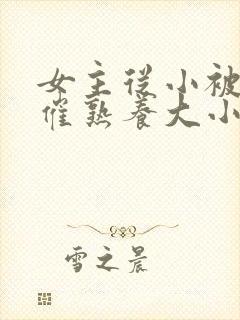 女主从小被
催熟养大小
雪之晨